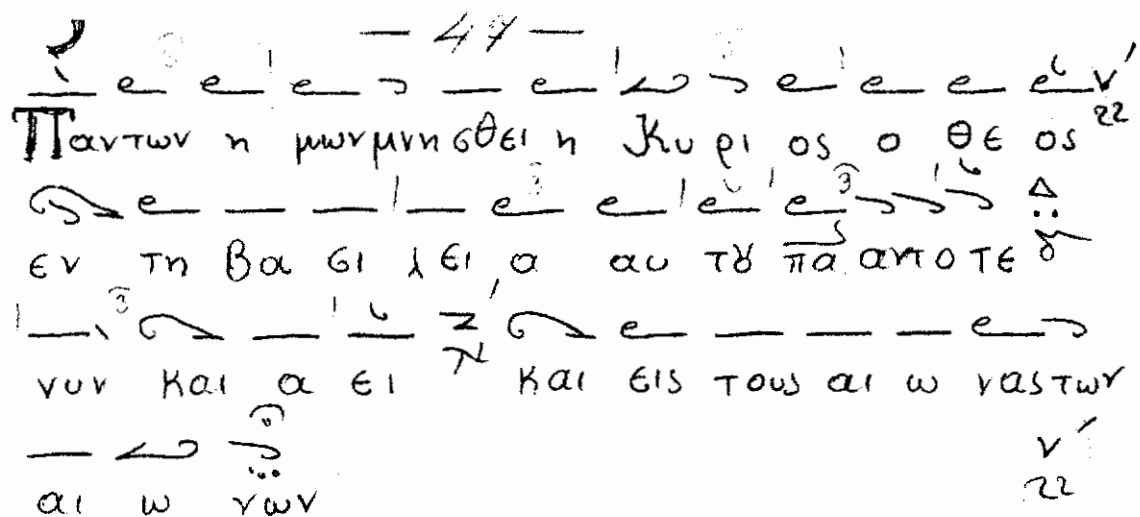 — 47 —
Παντων η μων μνησθει η Κυ ρι ος ο θε ος
εν τη βα σι λει α αυ τȣ πα αντοτε
νυν και α ει και εις τους αι ω νας των
αι ω νων